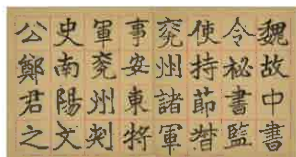 魏故中書
令秘書監
使持節督
兖州諸軍
事安東將
軍兖州刾
史南陽文
公鄭君之